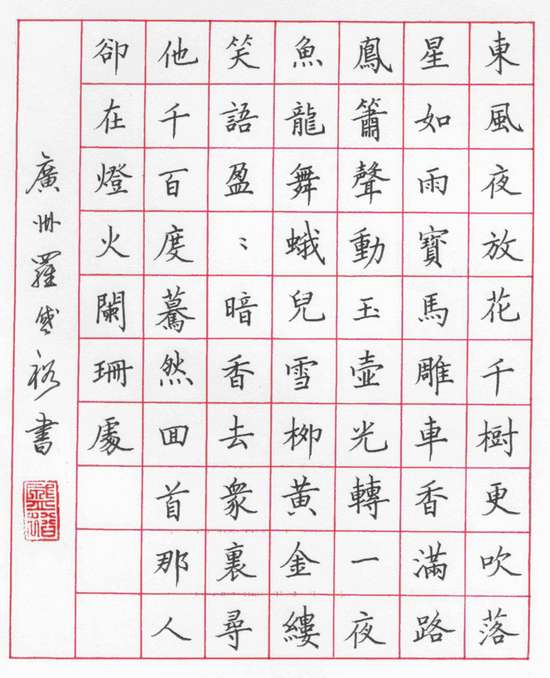 東風夜放花千樹更吹落
星如雨寶馬雕車香滿路
鳳簫聲動玉壺光轉一夜
魚龍舞蛾兒雪柳黃金縷
笑語盈〻暗香去衆裏尋
他千百度驀然回首那人
卻在燈火闌珊處
廣州羅裕書